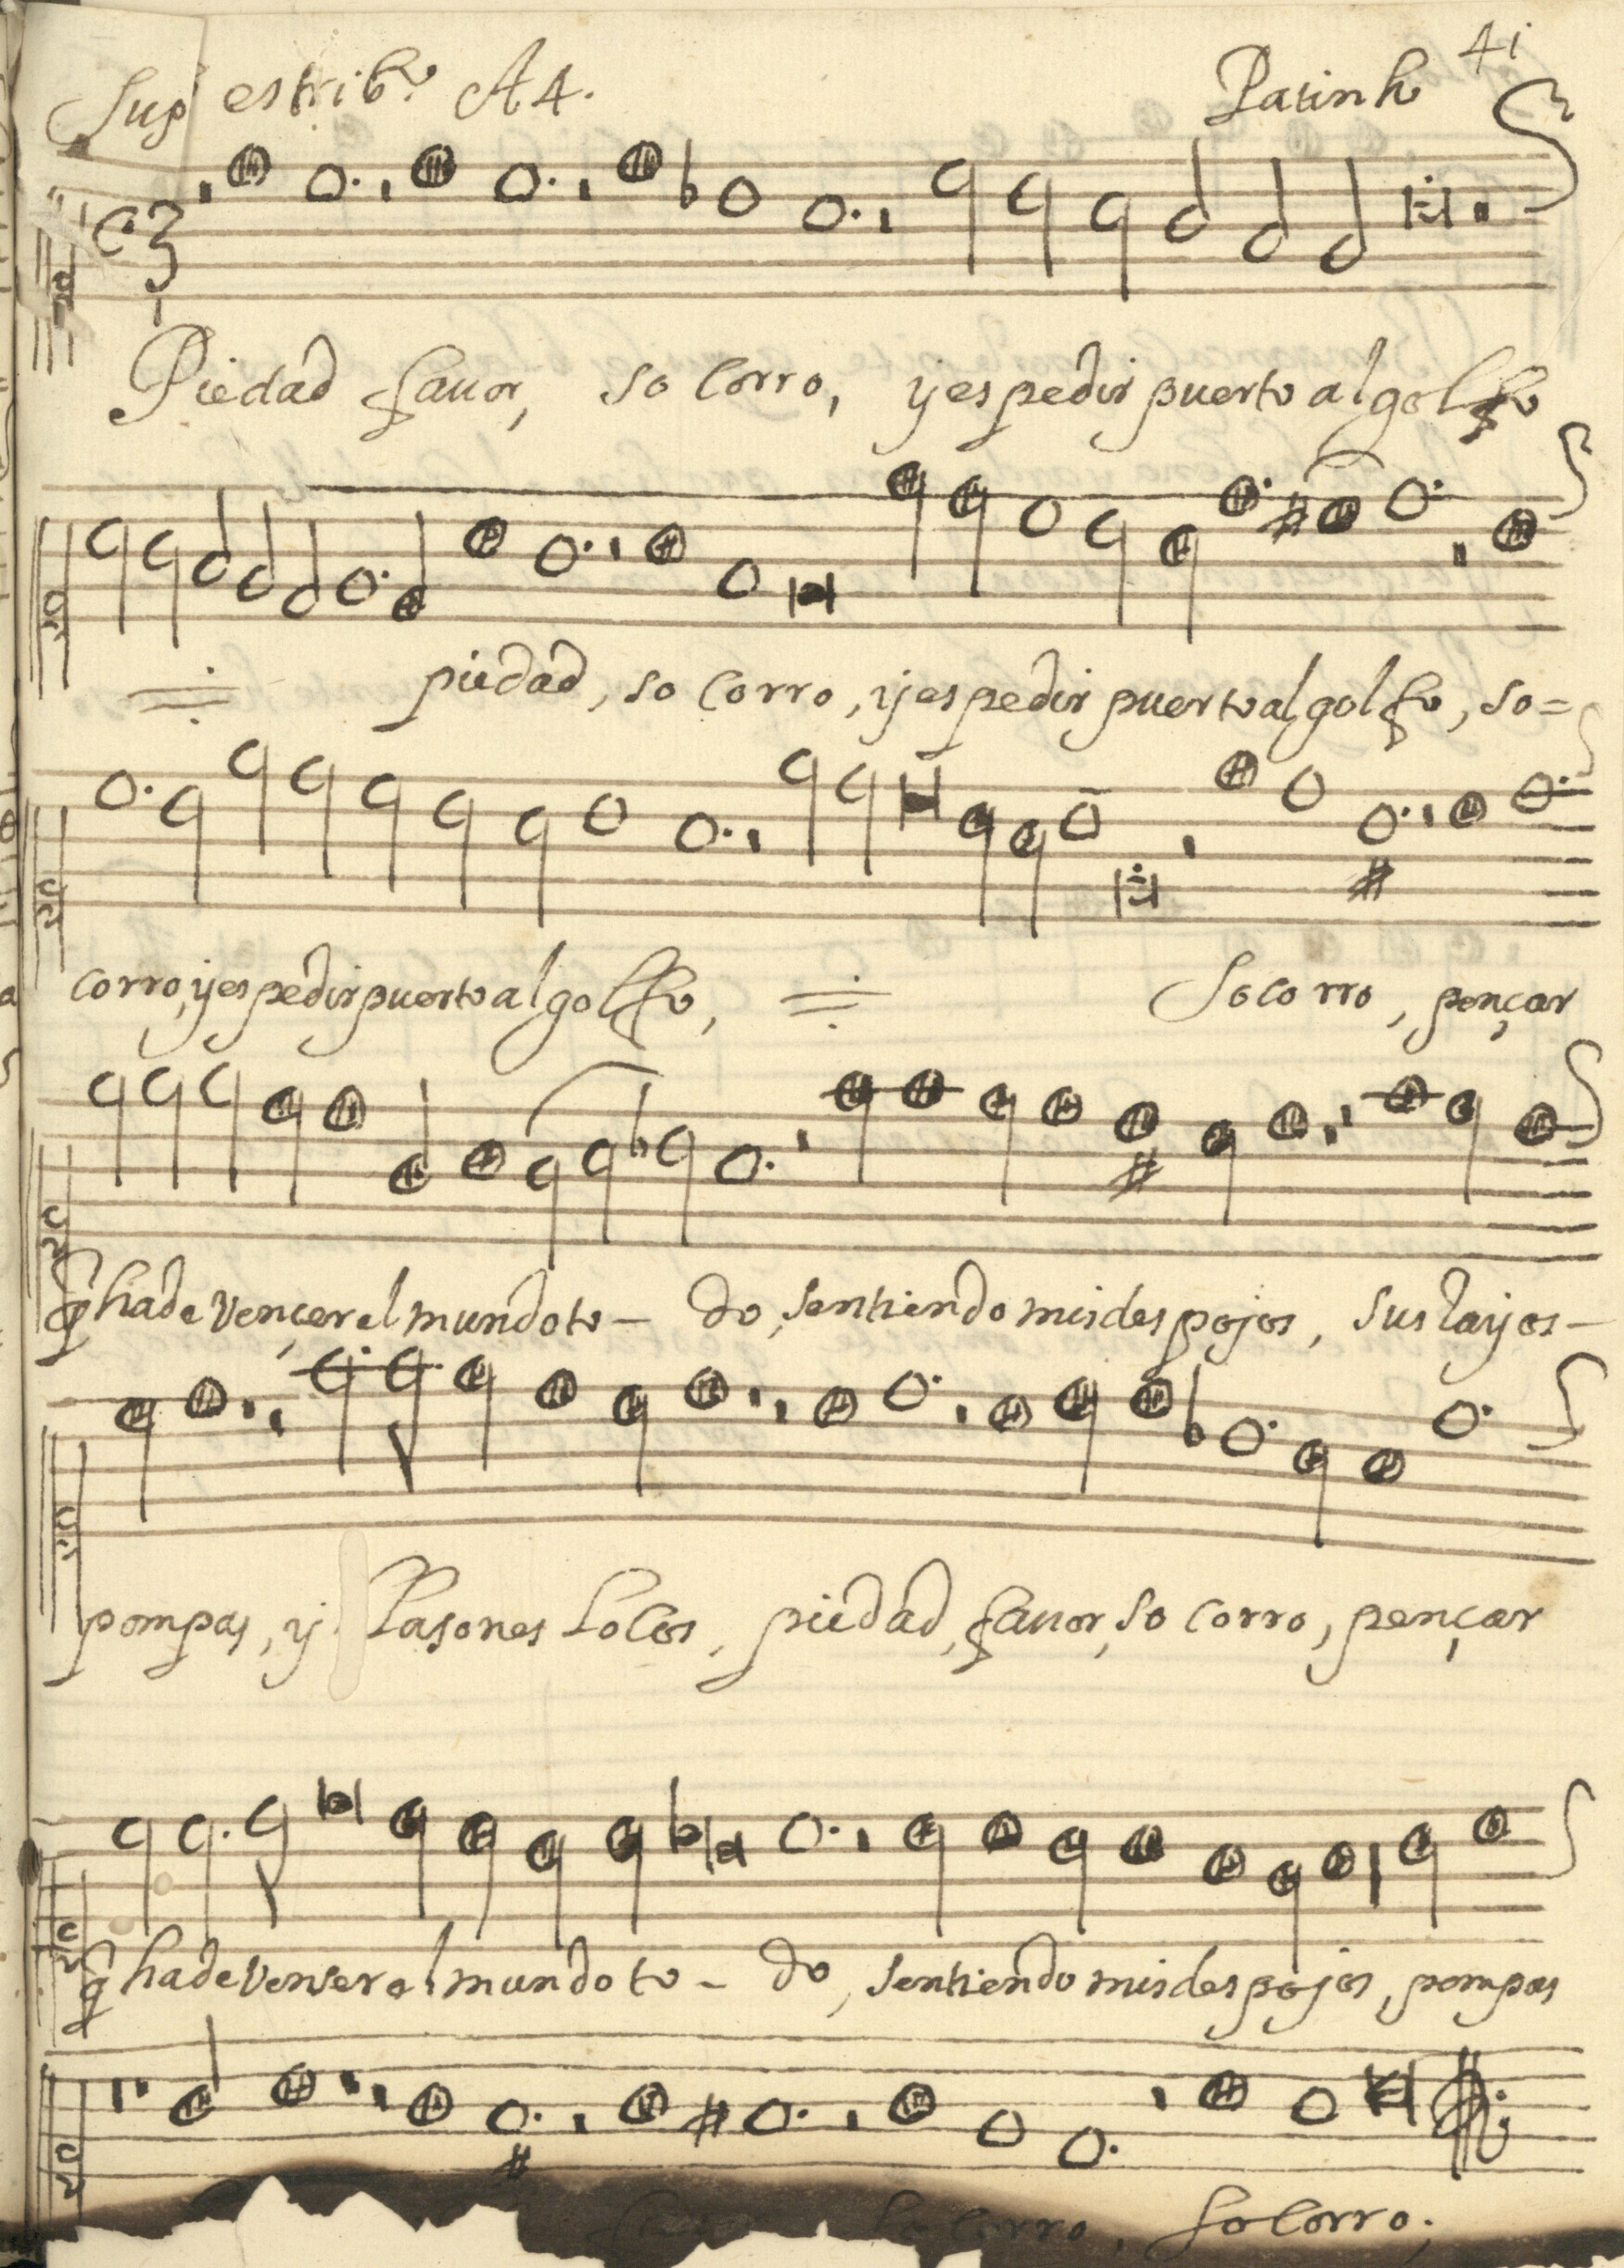 Sup estrib.º A4. Patinho 41
Piedad favor, socorro, y es pedir puerto al golfo
piedad, socorro, y es pedir puerto al golfo, so=
corro, y es pedir puerto al golfo, Socorro, pençar
q̃ ha de vençer el mundo to- do, sentiendo mis despojos, sus layos-
pompas, y blasones locos, piedad, favor, socorro, pençar
q̃ ha de venser el mundo to- do, sentiendo mis despojos, pompas
socorro, socorro.